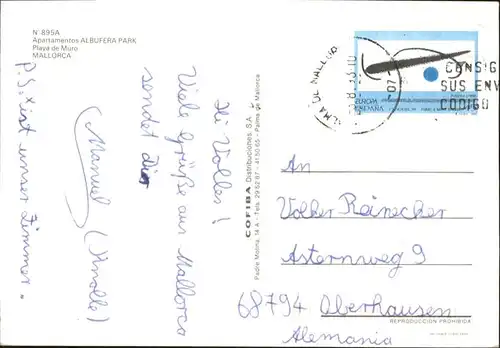 N.° 895A
Apartamentos ALBUFERA PARK
Playa de Muro
MALLORCA
Hi Volles!
Viele Grüße aus Mallorca
sendet Dir
Manuel (Knolle)
P.S. x ist unser Zimmer.
COFIBA Distribuciones, S.A.
Padre Molina, 14 A - Tels. 29 52 87 - 41 50 65 - Palma de Mallorca
PALMA DE MALLORCA
CONSIG
SUS ENV
CODIGO
EUROPA
ESPAÑA
An
Volker Reinecher
Asternweg 9
68794 Oberhausen
Alemania
REPRODUCCION PROHIBIDA